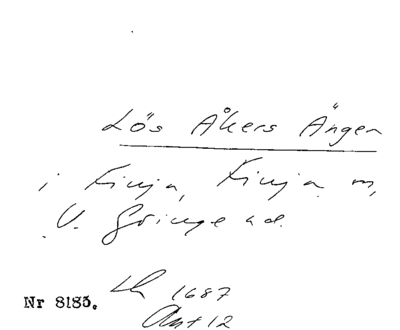 Lös Åkers Ängen
i Finja, Finja m,
V. Göinge hd.
Nr 8185. LK 1687
Ant 12